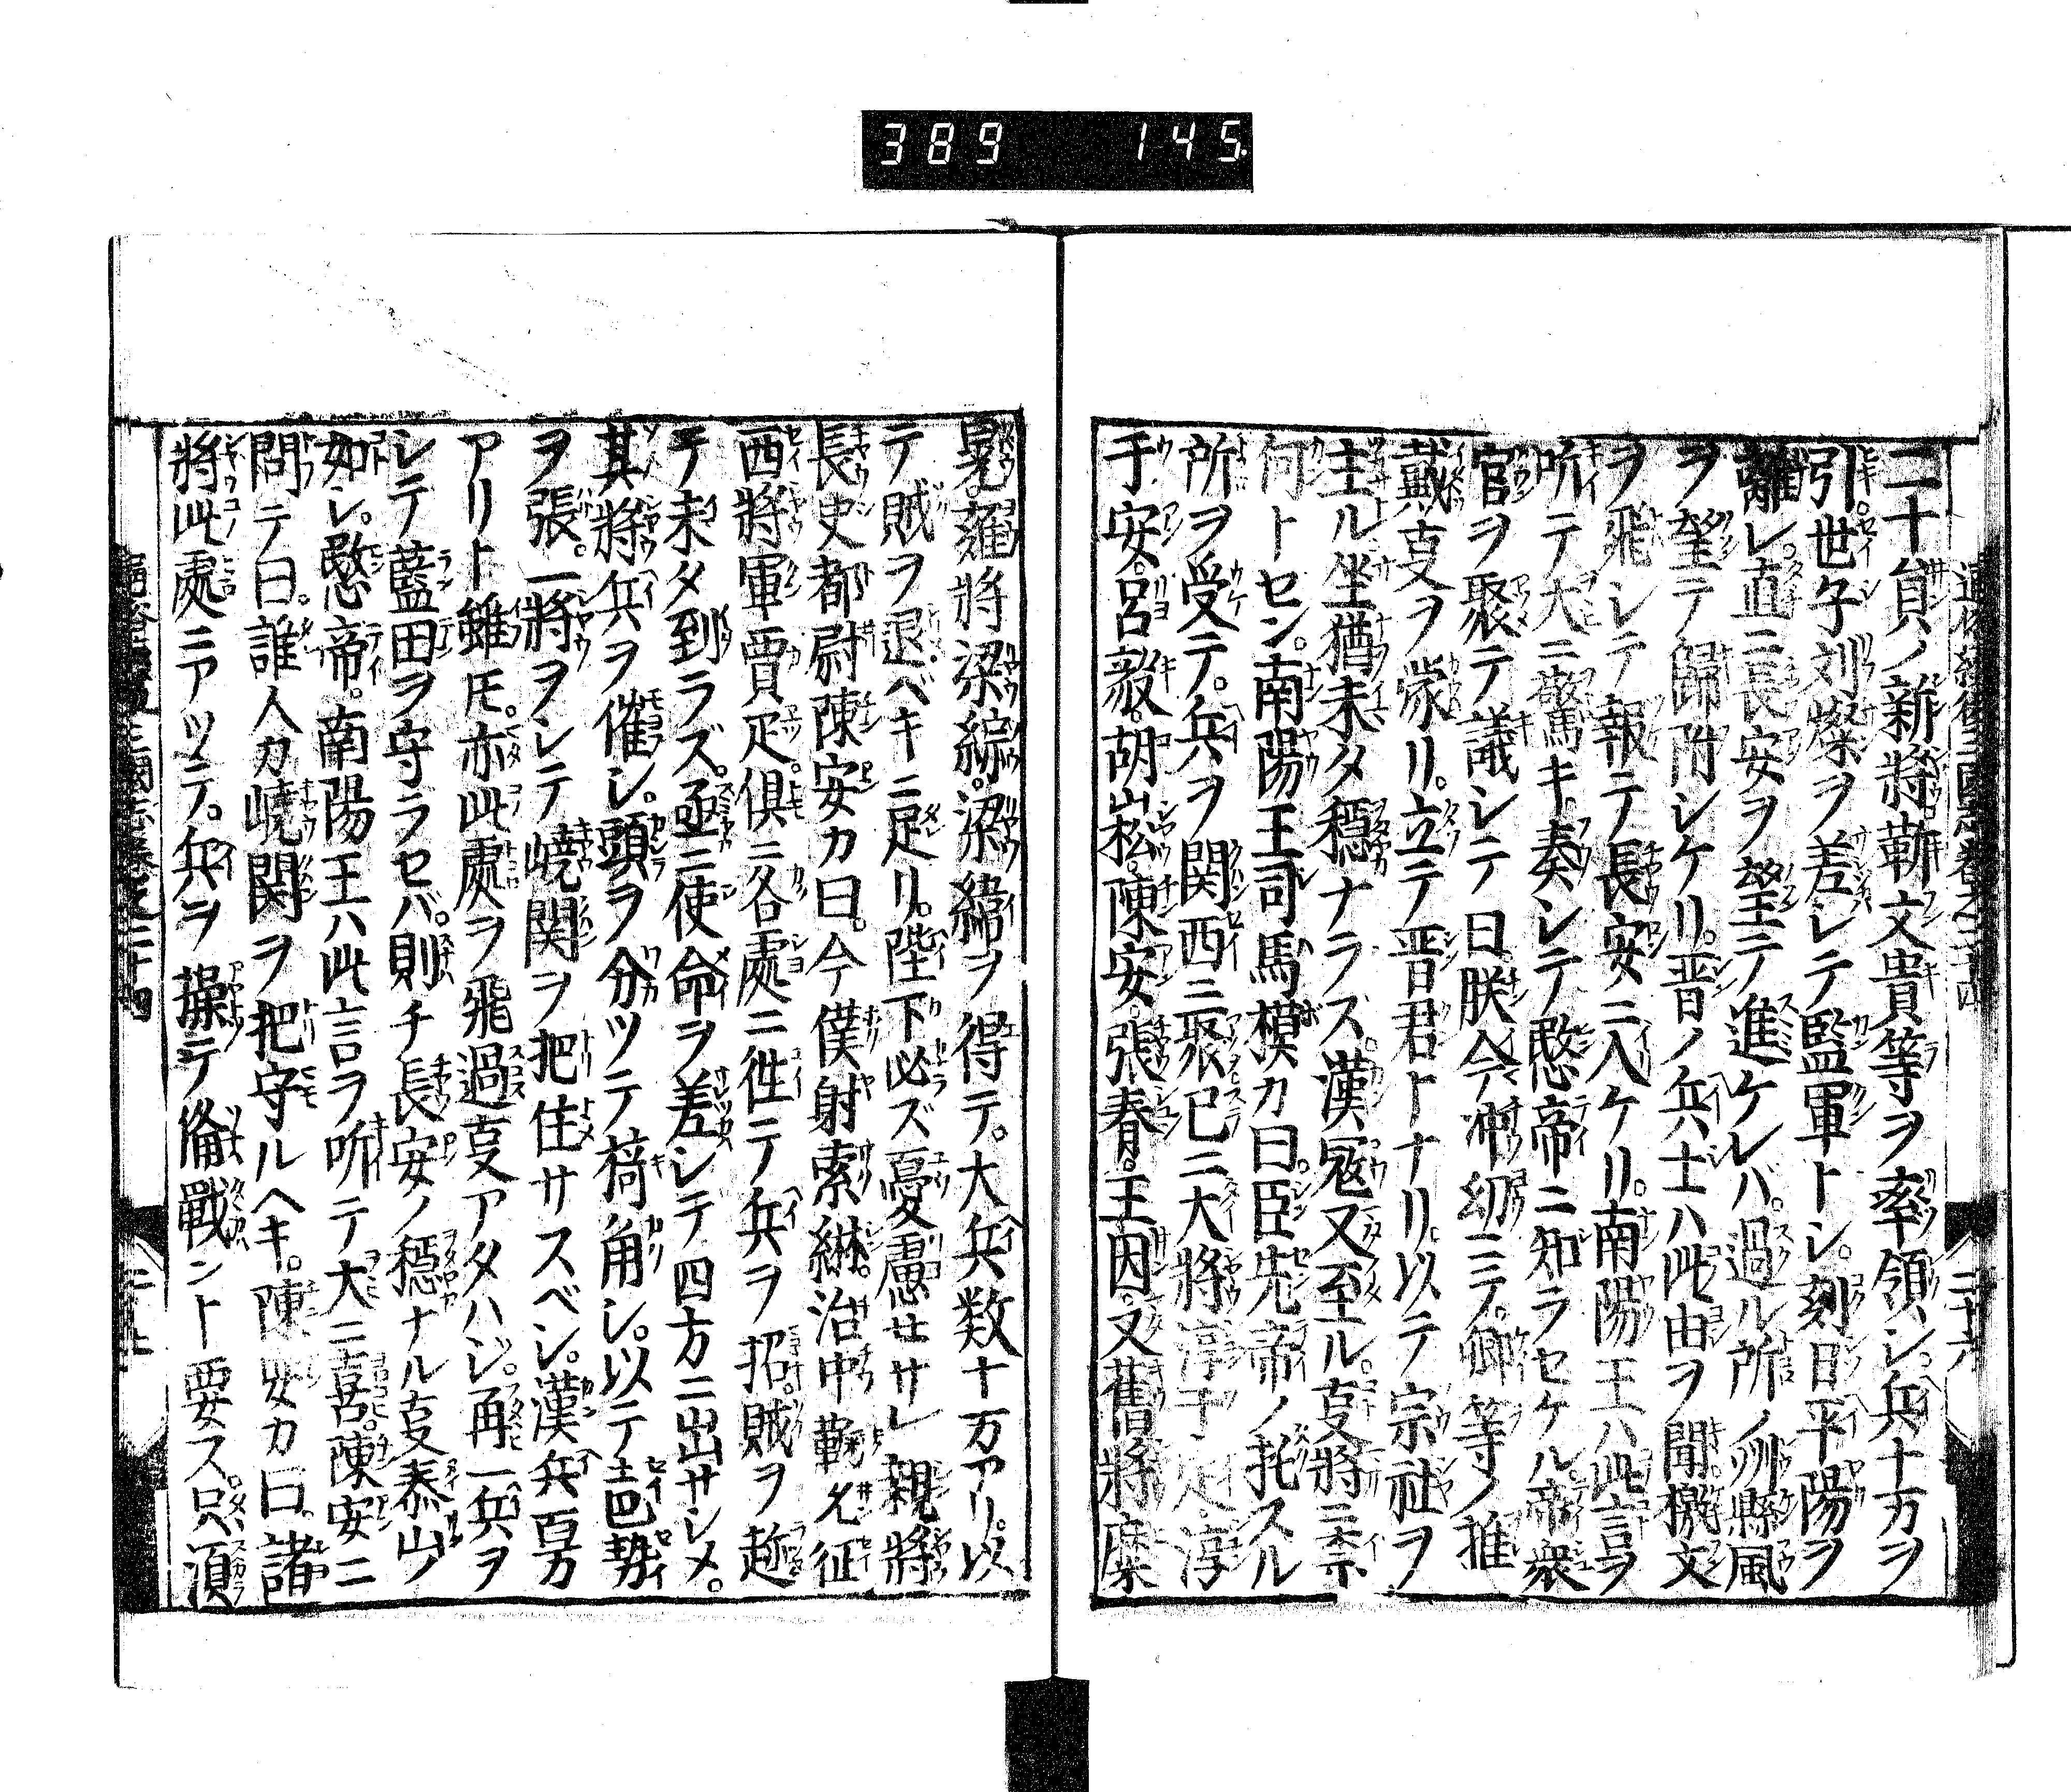 389 145
二十員ノ新將靳文貴等ヲ率領シ兵十万ヲ
引世子刘燦ヲ差レテ監軍トシ刻日平陽ヲ
離レ直ニ長安ヲ望テ進ケレバ過ル所ノ州縣風
ヲ望テ歸附シケリ晋ノ兵士ハ此由ヲ聞檄文
ヲ飛シテ報テ長安ニ入ケリ南陽王ハ此言ヲ
听テ大ニ驚キ奏シテ愍帝ニ知ラセケル帝衆
官ヲ聚テ議シテ曰朕今冲幼ニテ卿等ノ推
戴叓ヲ蒙リ立テ晋君トナリ以テ宗社ヲ
主ル坐猶未タ穏ナラス漢冦又至ル叓將ニ柰
何トセン南陽王司馬模カ曰臣先帝ノ托スル
所ヲ受テ兵ヲ関西ニ聚已ニ大將淳于定淳
于安呂毅胡崧陳安張春王因又舊將麋
晃羅將梁綜梁緯ヲ得テ大兵数十万アリ以
テ賊ヲ退ベキニ足リ陛下必ズ憂慮セサレ親將
長史都尉陳安カ曰今僕射索綝治中麹允征
西將軍賈疋俱ニ各處ニ徃テ兵ヲ招賊ヲ趂
テ未タ到ラズ亟ニ使命ヲ差シテ四方ニ出サシメ
其將兵ヲ催シ頭ヲ分ツテ犄角シ以テ声勢
ヲ張一將ヲシテ嶢関ヲ把住サスベシ漢兵百万
アリト雖モ亦此處ヲ飛過叓アタハジ再一兵ヲ
シテ藍田ヲ守ラセバ則チ長安ノ穏ナル叓泰山ノ
如シ愍帝南陽王ハ此言ヲ听テ大ニ喜陳安ニ
問テ曰誰人カ嶢関ヲ把守ルヘキ陳安カ曰諸
將此處ニアツテ兵ヲ操テ備戰ント要ス只須